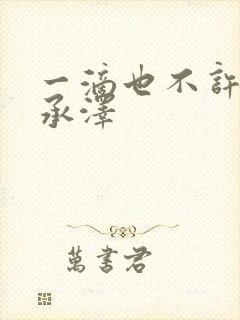 一滴也不許
承澤
萬書君